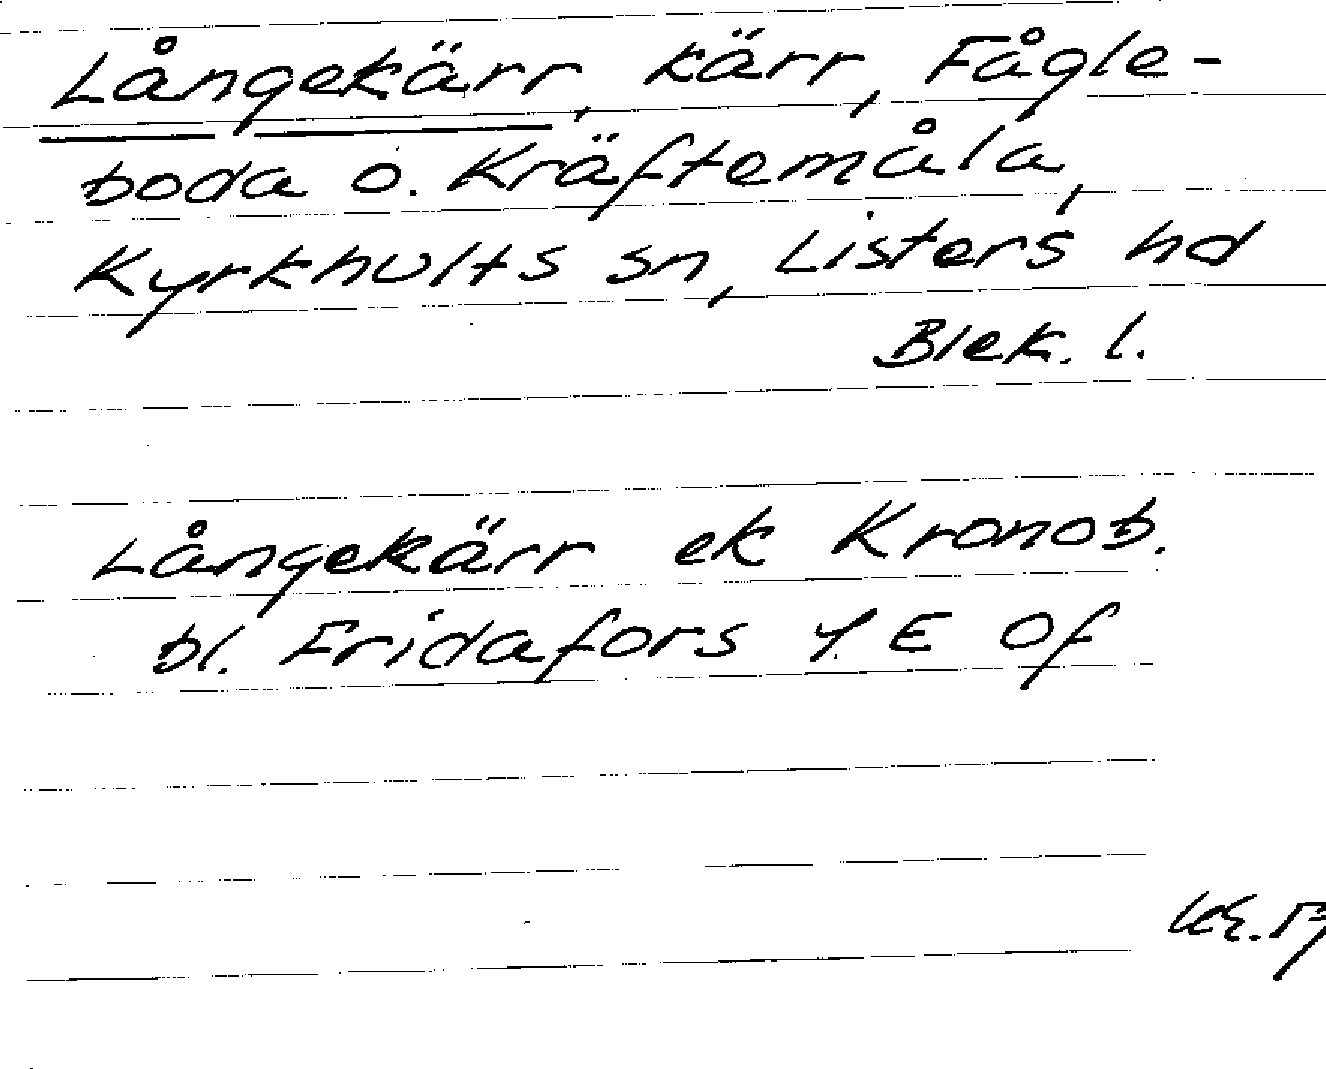 Långekärr, kärr, Fågle-
boda o. Kräftemåla,
Kyrkhults sn, Listers hd
Blek. l.
Långekärr ek Kronob.
bl. Fridafors Y. E Of